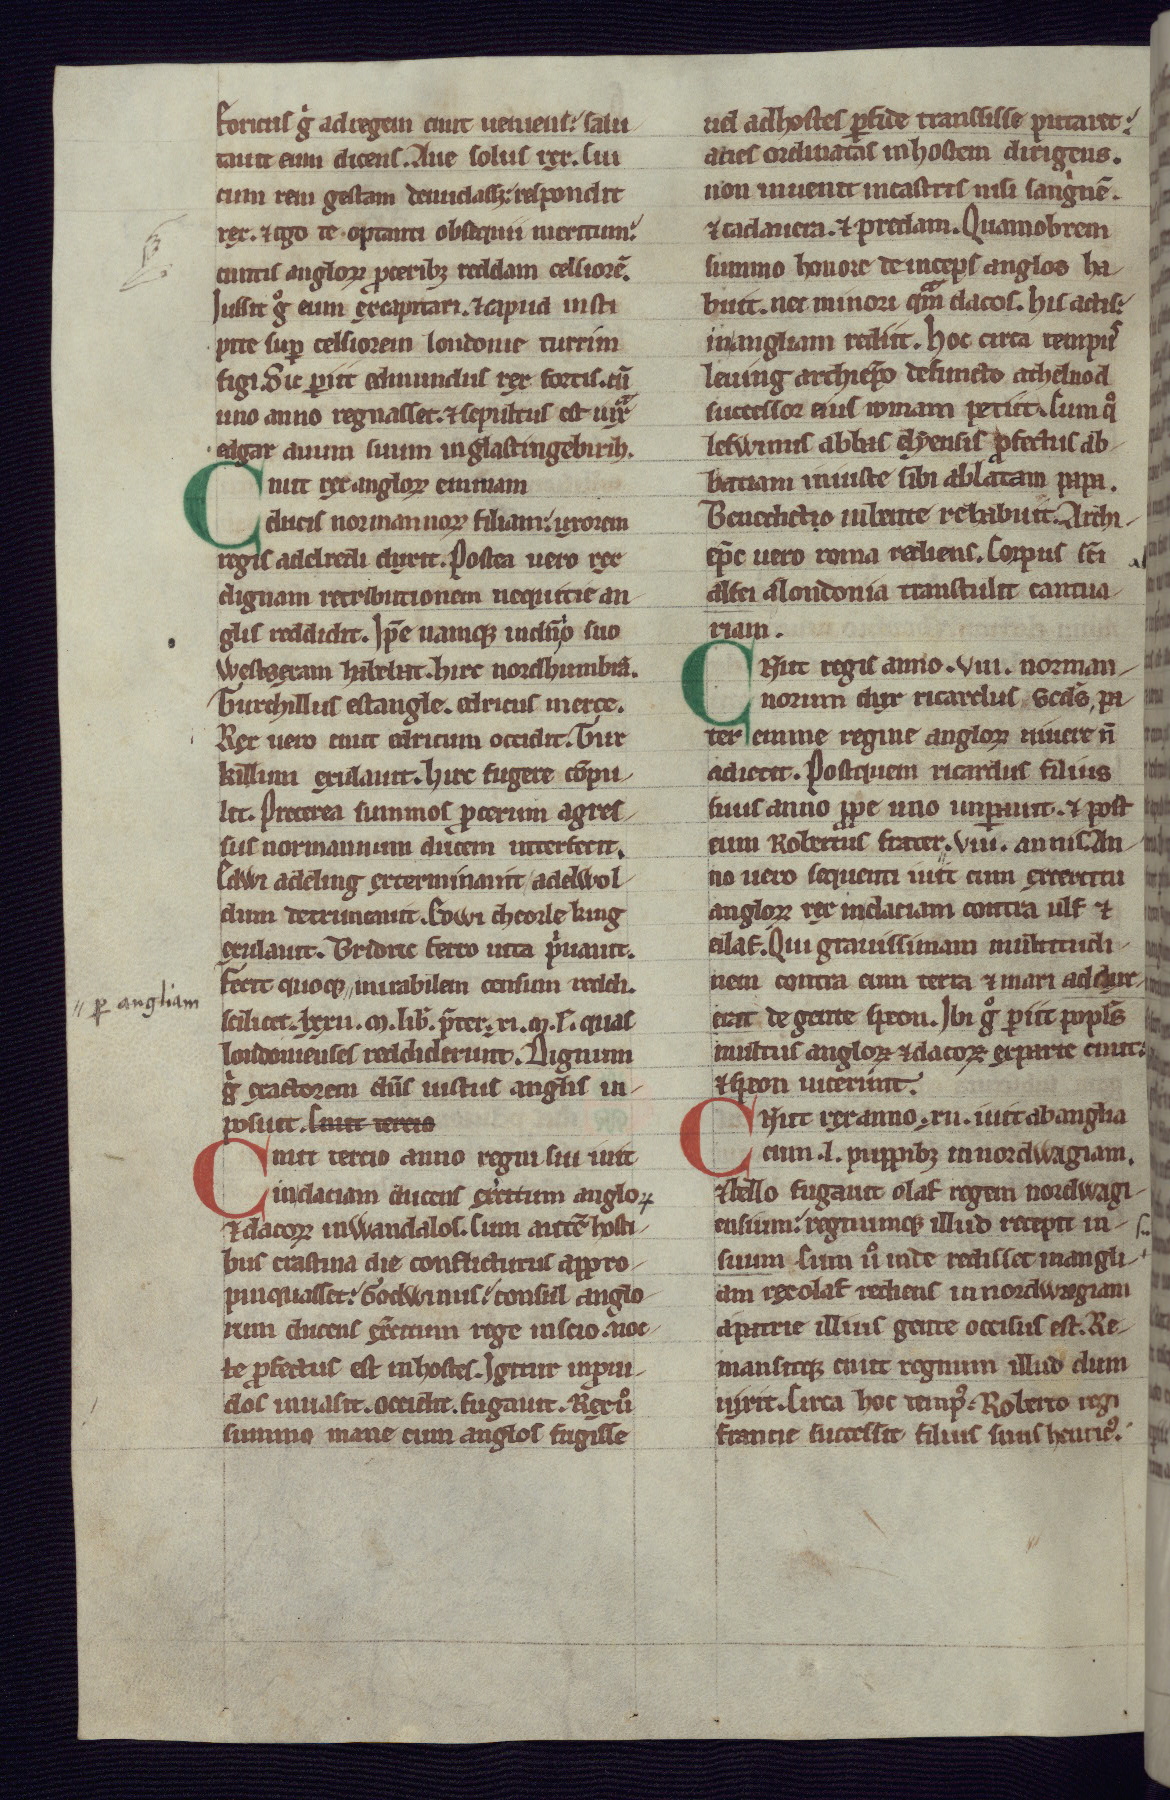 Edricus gͥ ad regem cnut ueniens: salu
tauit eum dicens. Aue solus rex. Cui
cum rem gestam denudasset: respondit
rex. & ego te optanti obsequii meritum:
cunctis anglorꝝ proceribꝫ reddam celsiorē.
Iussit gͦ eum excapitari. & capud in sti
pite suꝑ celsiorem londonie turrim
figi. Sic ꝑiit edmundus rex fortis. cū
uno anno regnasset. & sepultus est iuxͣ
edgar auum suum in glastingebirih.
Cnut rex anglorꝝ emmam
ducis normannorꝝ filiam: uxorem
regis adelredi duxit. Postea uero rex
dignam retributionem nequitie an
glis reddidit. Ip̄e namqꝫ in dn̄io suo
Westsexam habebat. hirc nordhumbrā.
Turchillus estangle. edricus merce.
Rex uero cnut edricum occidit. Tur
killum exulauit. hirc fugere cōpu-
lit. Preterea summos procerum agres-
sus normannum ducem interfecit.
Edwi adeling exterminauit adelwol-
dum detruncauit. Edwi cheorle king
exulauit. Bridric ferro uita pͥuauit.
Fecit quoqꝫ // mirabilem censum reddi.
// ꝑ angliam
scilicet. lxxii. M. lib̄. p̄ter. xi. M. l̄. quas
londonienses reddiderunt. Dignum
gͥ exactorem dn̄s iustus anglis in-
posuit. Cnut tercio
Cnut tercio anno regni sui iuit
in daciam ducens ex̄citum anglorꝝ
& dacorꝝ in Wandalos. Cum autē hosti-
bus crastina die conflicturus appro-
pinquasset: Godwinus: consul anglo
rum ducens ex̄citum rege inscio. noc-
te profectus est in hostes. Igitur inproui-
dos inuasit. occidit. fugauit. Rex uͦ
summo mane cum anglos fugisse
uel ad hostes ꝑfide transisse putaret:
acies ordinatas in hostem dirigens.
non inuenit in castris nisi sangͥnē.
& cadauera. & predam. Quamobrem
summo honore deinceps anglos ha-
buit. nec minori qͣm dacos. His actis:
in angliam rediit. Hoc circa tempus
leuing archiep̄o defuncto athelnod
successor eius romam petiit. Cum qͦ
lefwinus abbas elyensis profectus ab-
batiam iniuste sibi ablatam papa.
Benedicto iubente rehabuit. Archi-
ep̄c uero roma rediens. Corpus sc̄i
alfei a londonia transtulit cantua-
riam.
CNut regis anno. viii. norman-
norum dux ricardus, Scd̄s, pa
ter emme regine anglorꝝ uiuere n̄
adiecit. Post quem ricardus filius
suus anno prope uno imꝑauit. & post
eum Robertus frater. viii. annis. An-
no uero sequenti iuit cum exercitu
anglorꝝ rex in daciam contra ulf &
eilaf. Qui grauissimam multitudi-
nem contra eum terra & mari addux-
erat de gente speon. Ibi gͦ ꝑiit popls̄
multus anglorꝝ & dacorꝝ ex parte cnut:
& speon uicerunt.
CNut rex anno. xii. iuit ab anglia
cum. l. puppibꝫ in nordwagiam.
& bello fugauit olaf regem nordwagi-
ensium: regnumqꝫ illud recepit in
suum. Cum uͦ inde redisset in angli-
am rex olaf rediens in nordwagiam
a patrie illius gente occisus est. Re-
mansitqꝫ cnut regnum illud dum
uixit. Circa hoc tempꝰ. Roberto regi
francie successit filius suus henricꝰ.